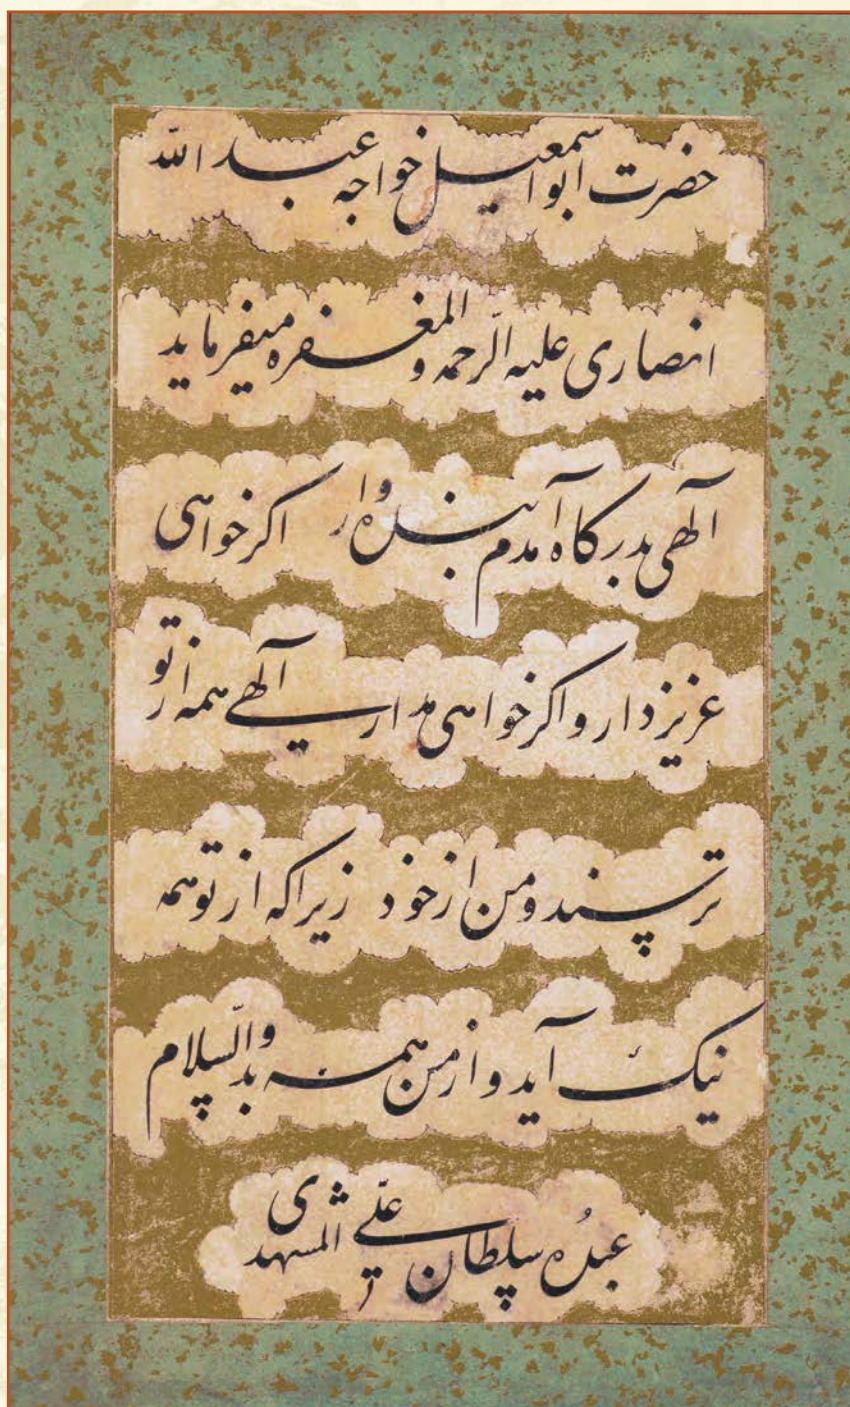 حضرت ابو اسمعیل خواجه عبد الله
انصاری علیه الرّحمه و المغفره میفرماید
آلهی بدرگاه آمدم بنده وار اکر خواهی
عزیز دار و اکر خواهی مدار آلهی همه از تو
ترسند و من از خود زیرا که از تو همه
نیک آید و از من همه بد والسّلام
عبدُه سلطان علی المشهدی